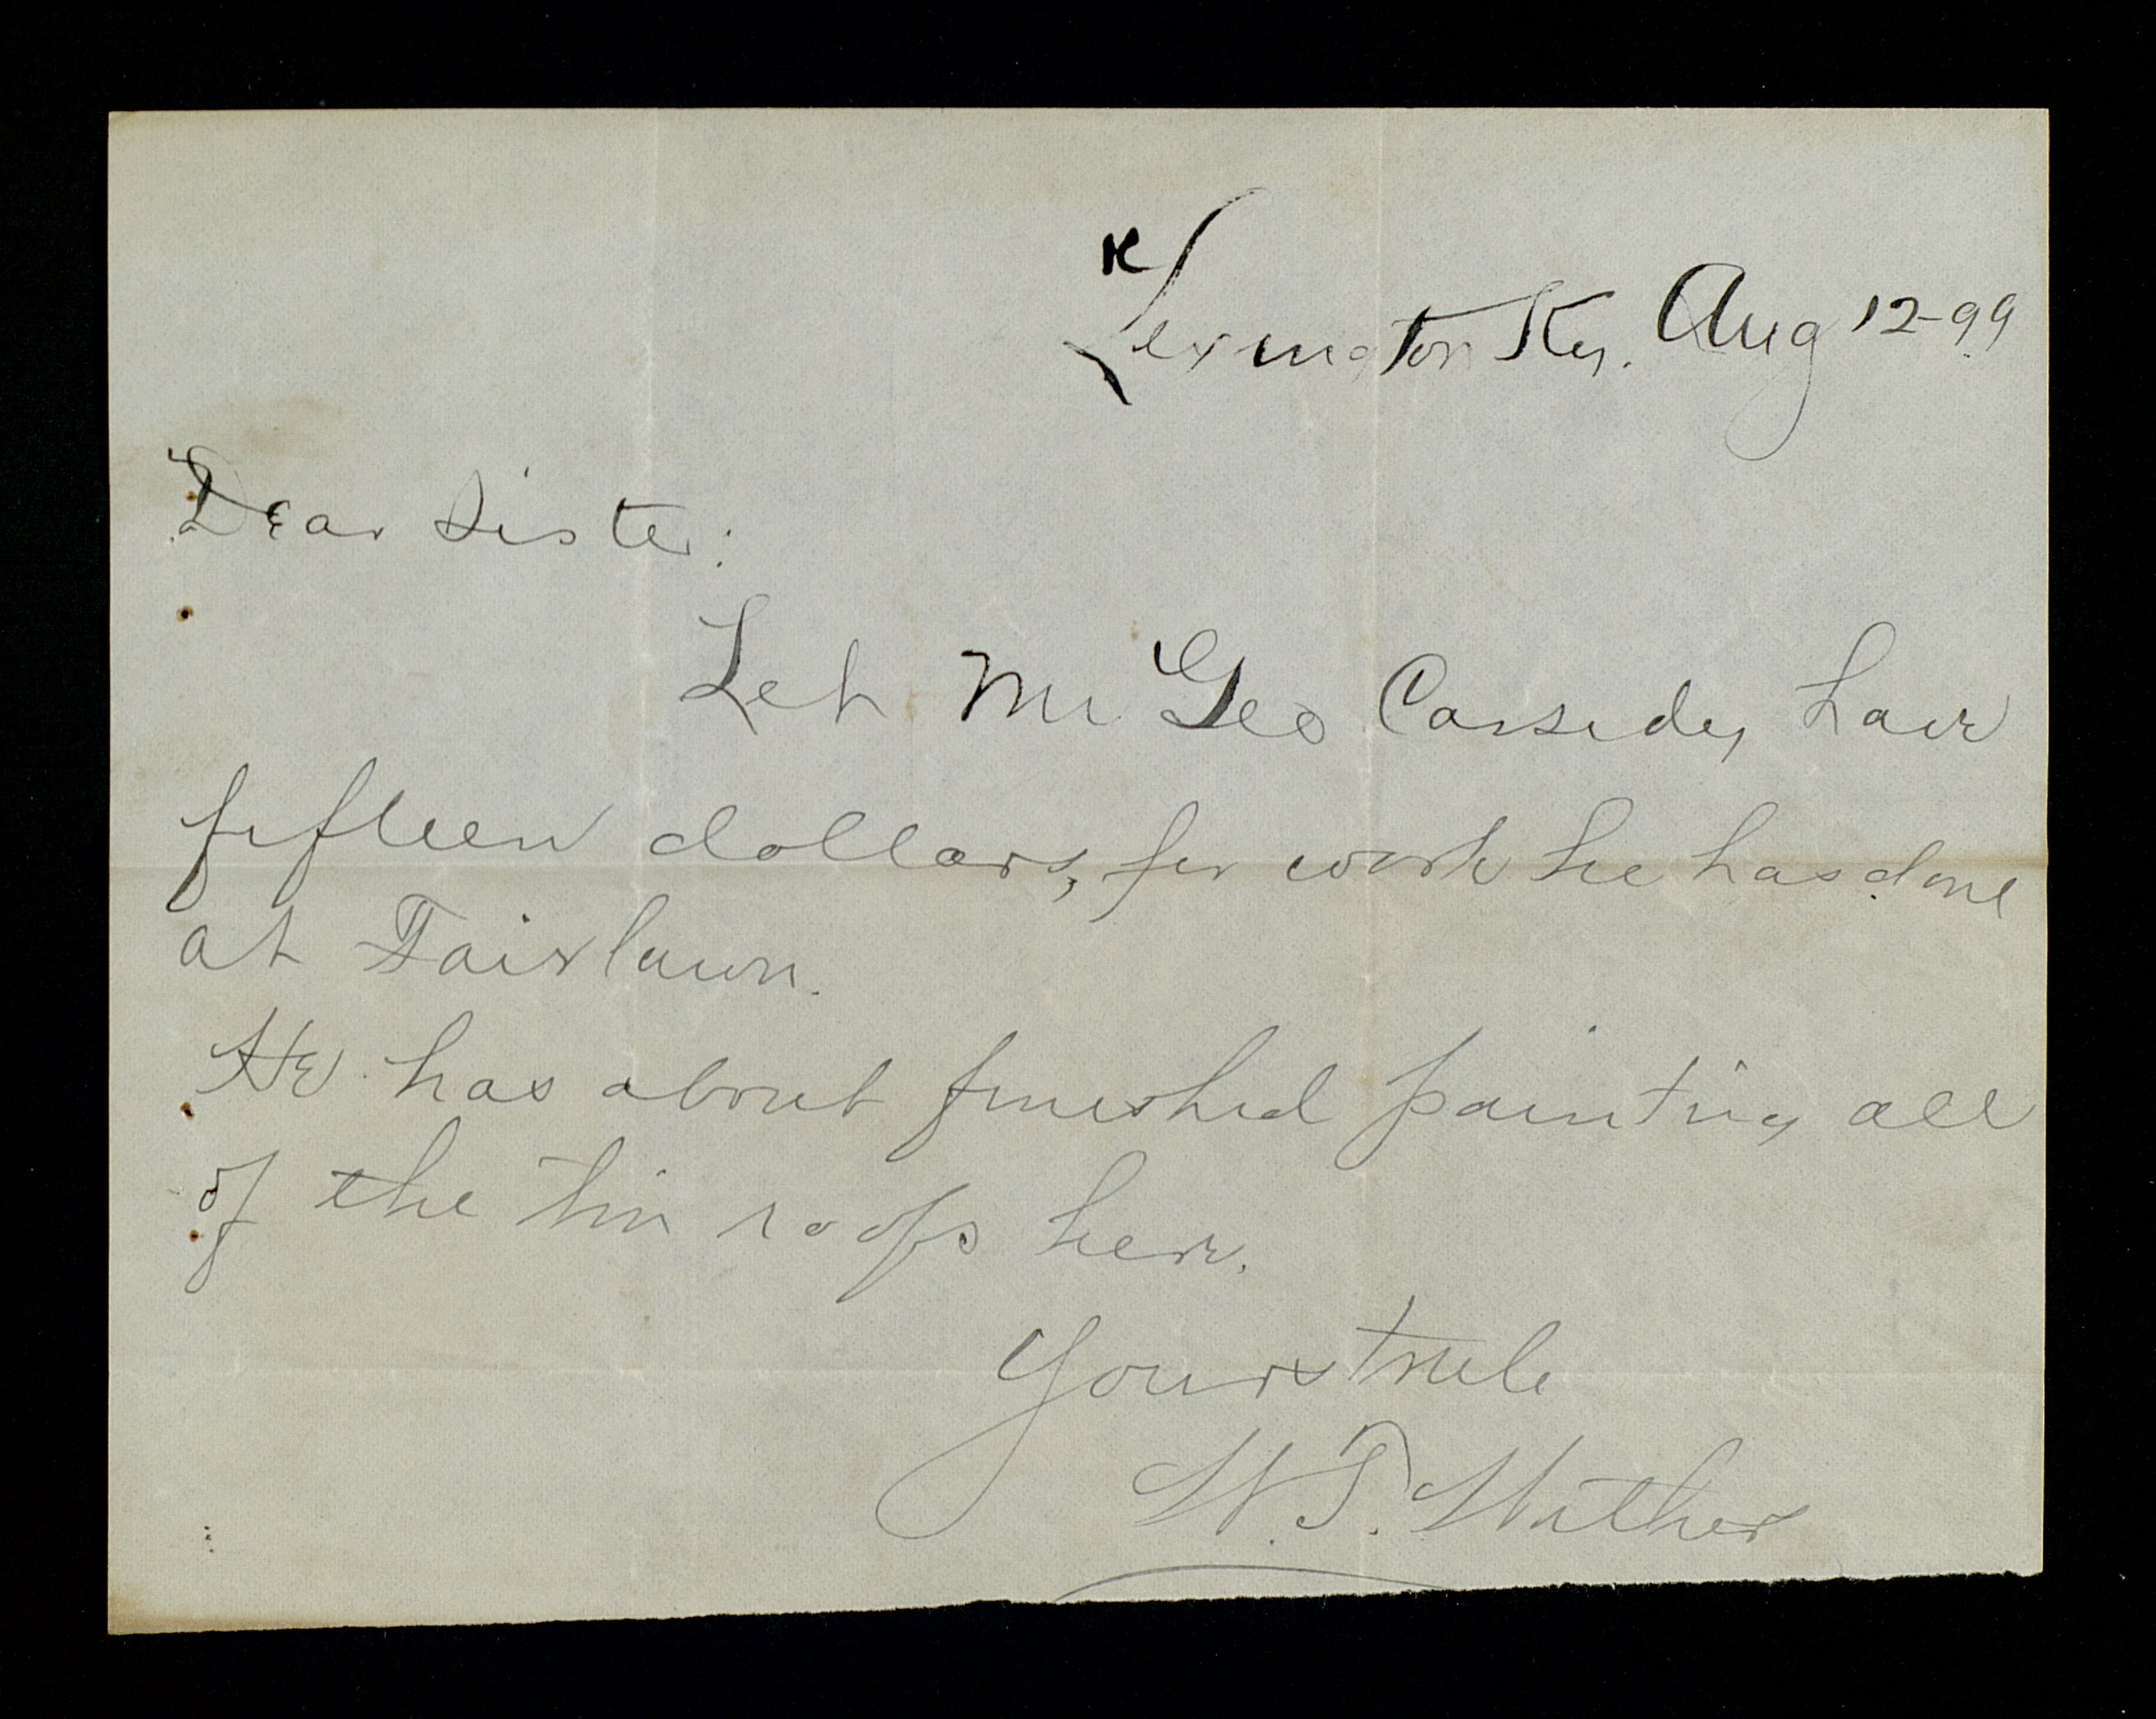 Lexington Ky. Aug 12-99
Dear Sister:
Let Mr Geo Cassidy have
fifteen dollars, for work he has done
at Fairlawn.
He has about finished painting all
of the tin roofs here.
Yours truly
W. T. Withers